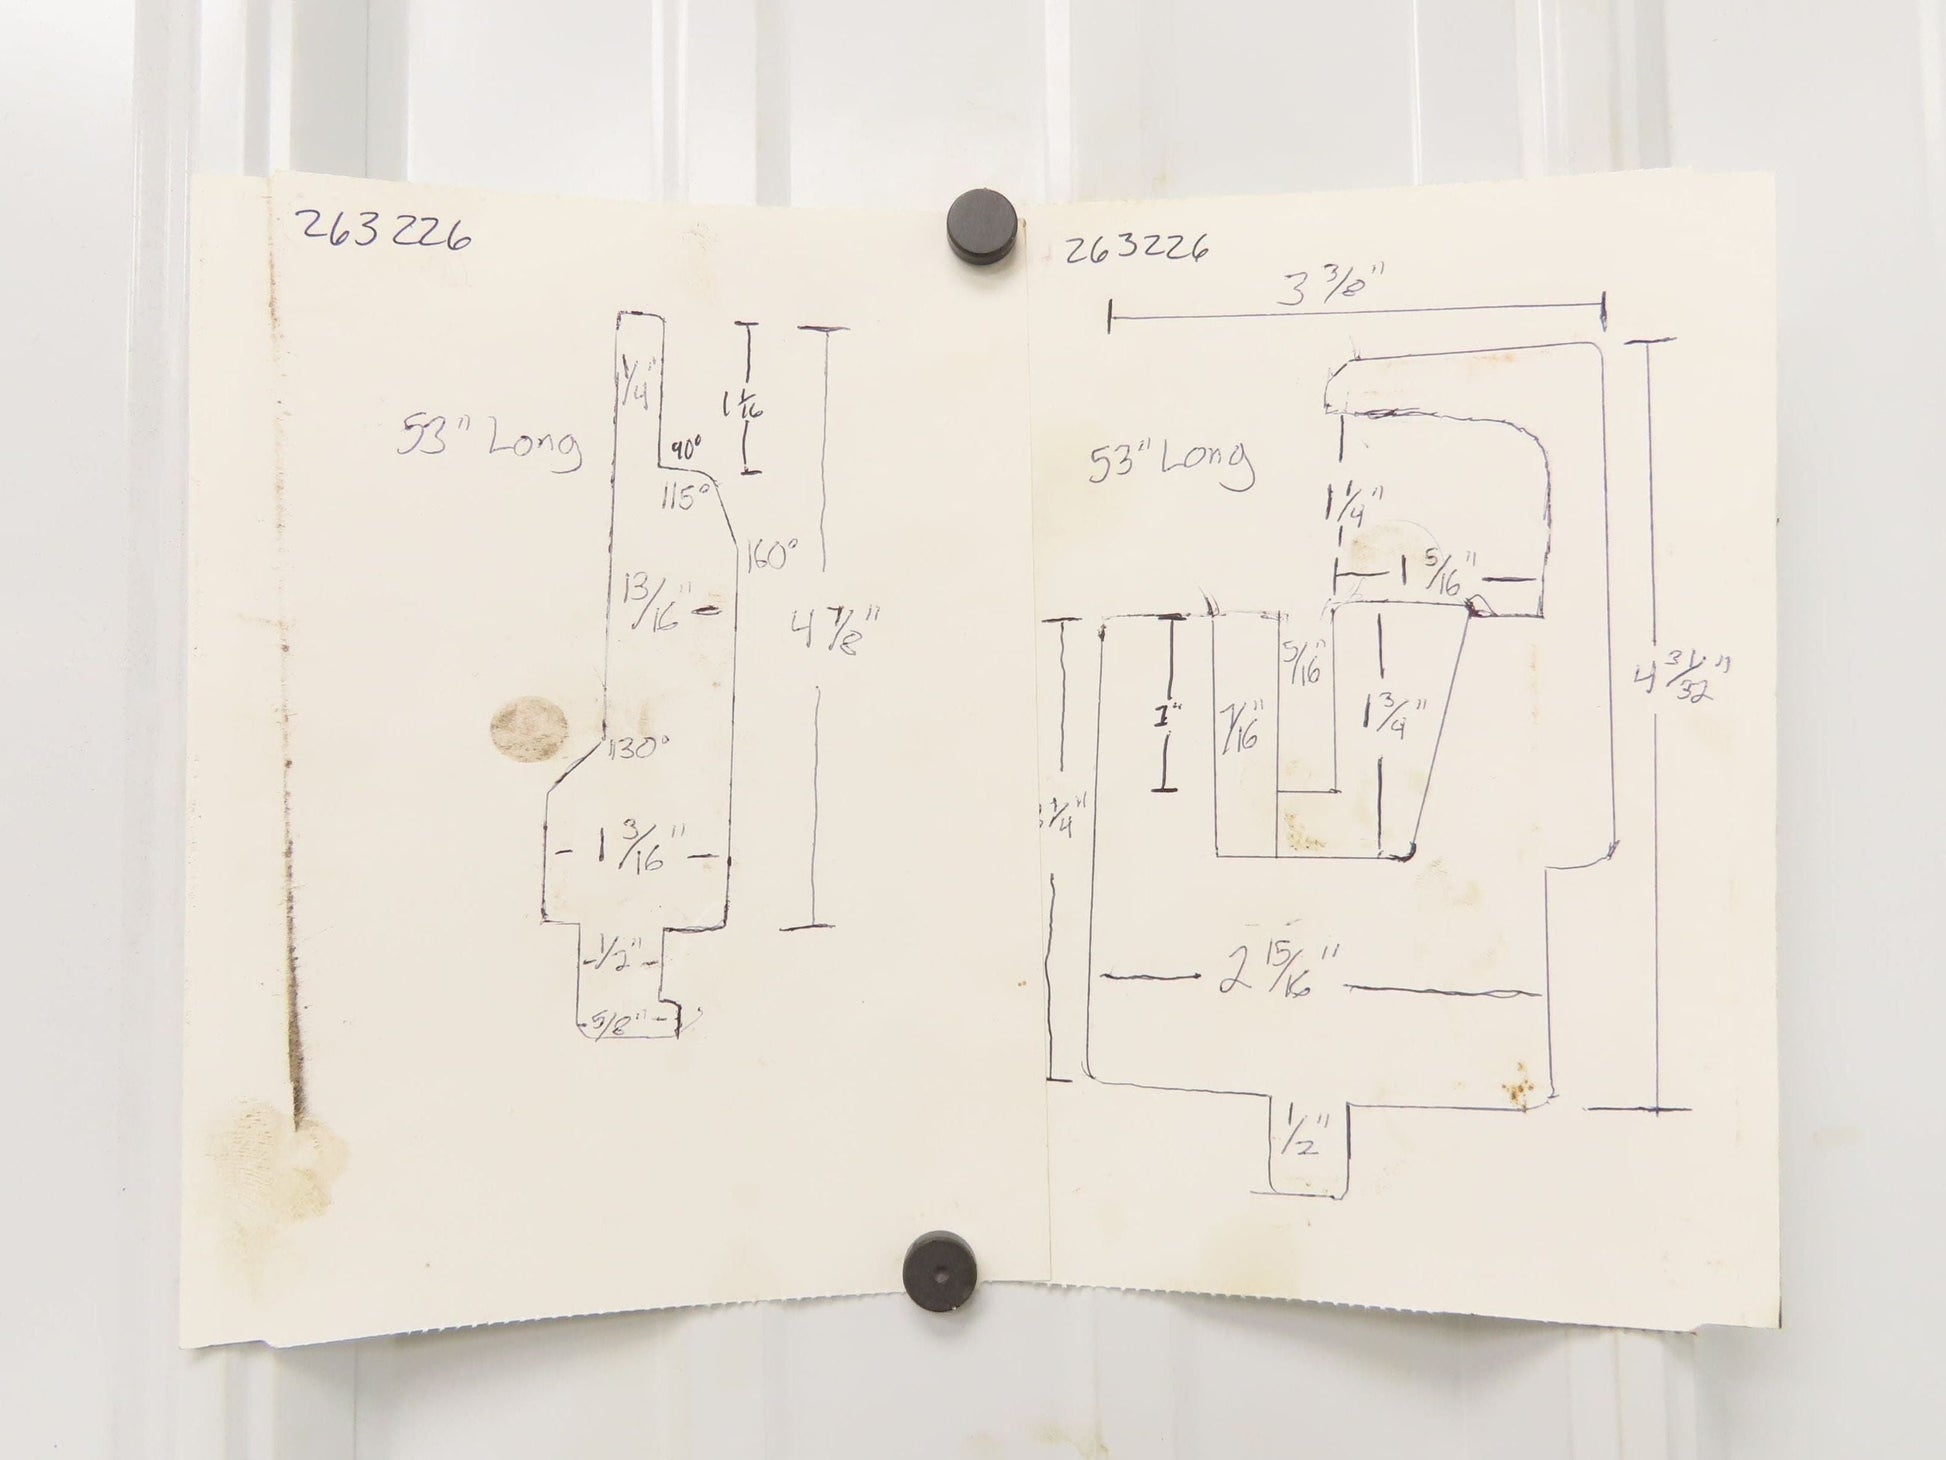 263226
1/4"
1 1/16
53" Long
90°
115°
160°
13/16"
4 7/8"
130°
1 3/16"
1/2"
5/8"
263226
3 3/8"
53" Long
1 1/4"
1 5/16"
5/16"
4 31/32"
1"
7/16"
1 3/4"
1/4"
2 15/16"
1/2"